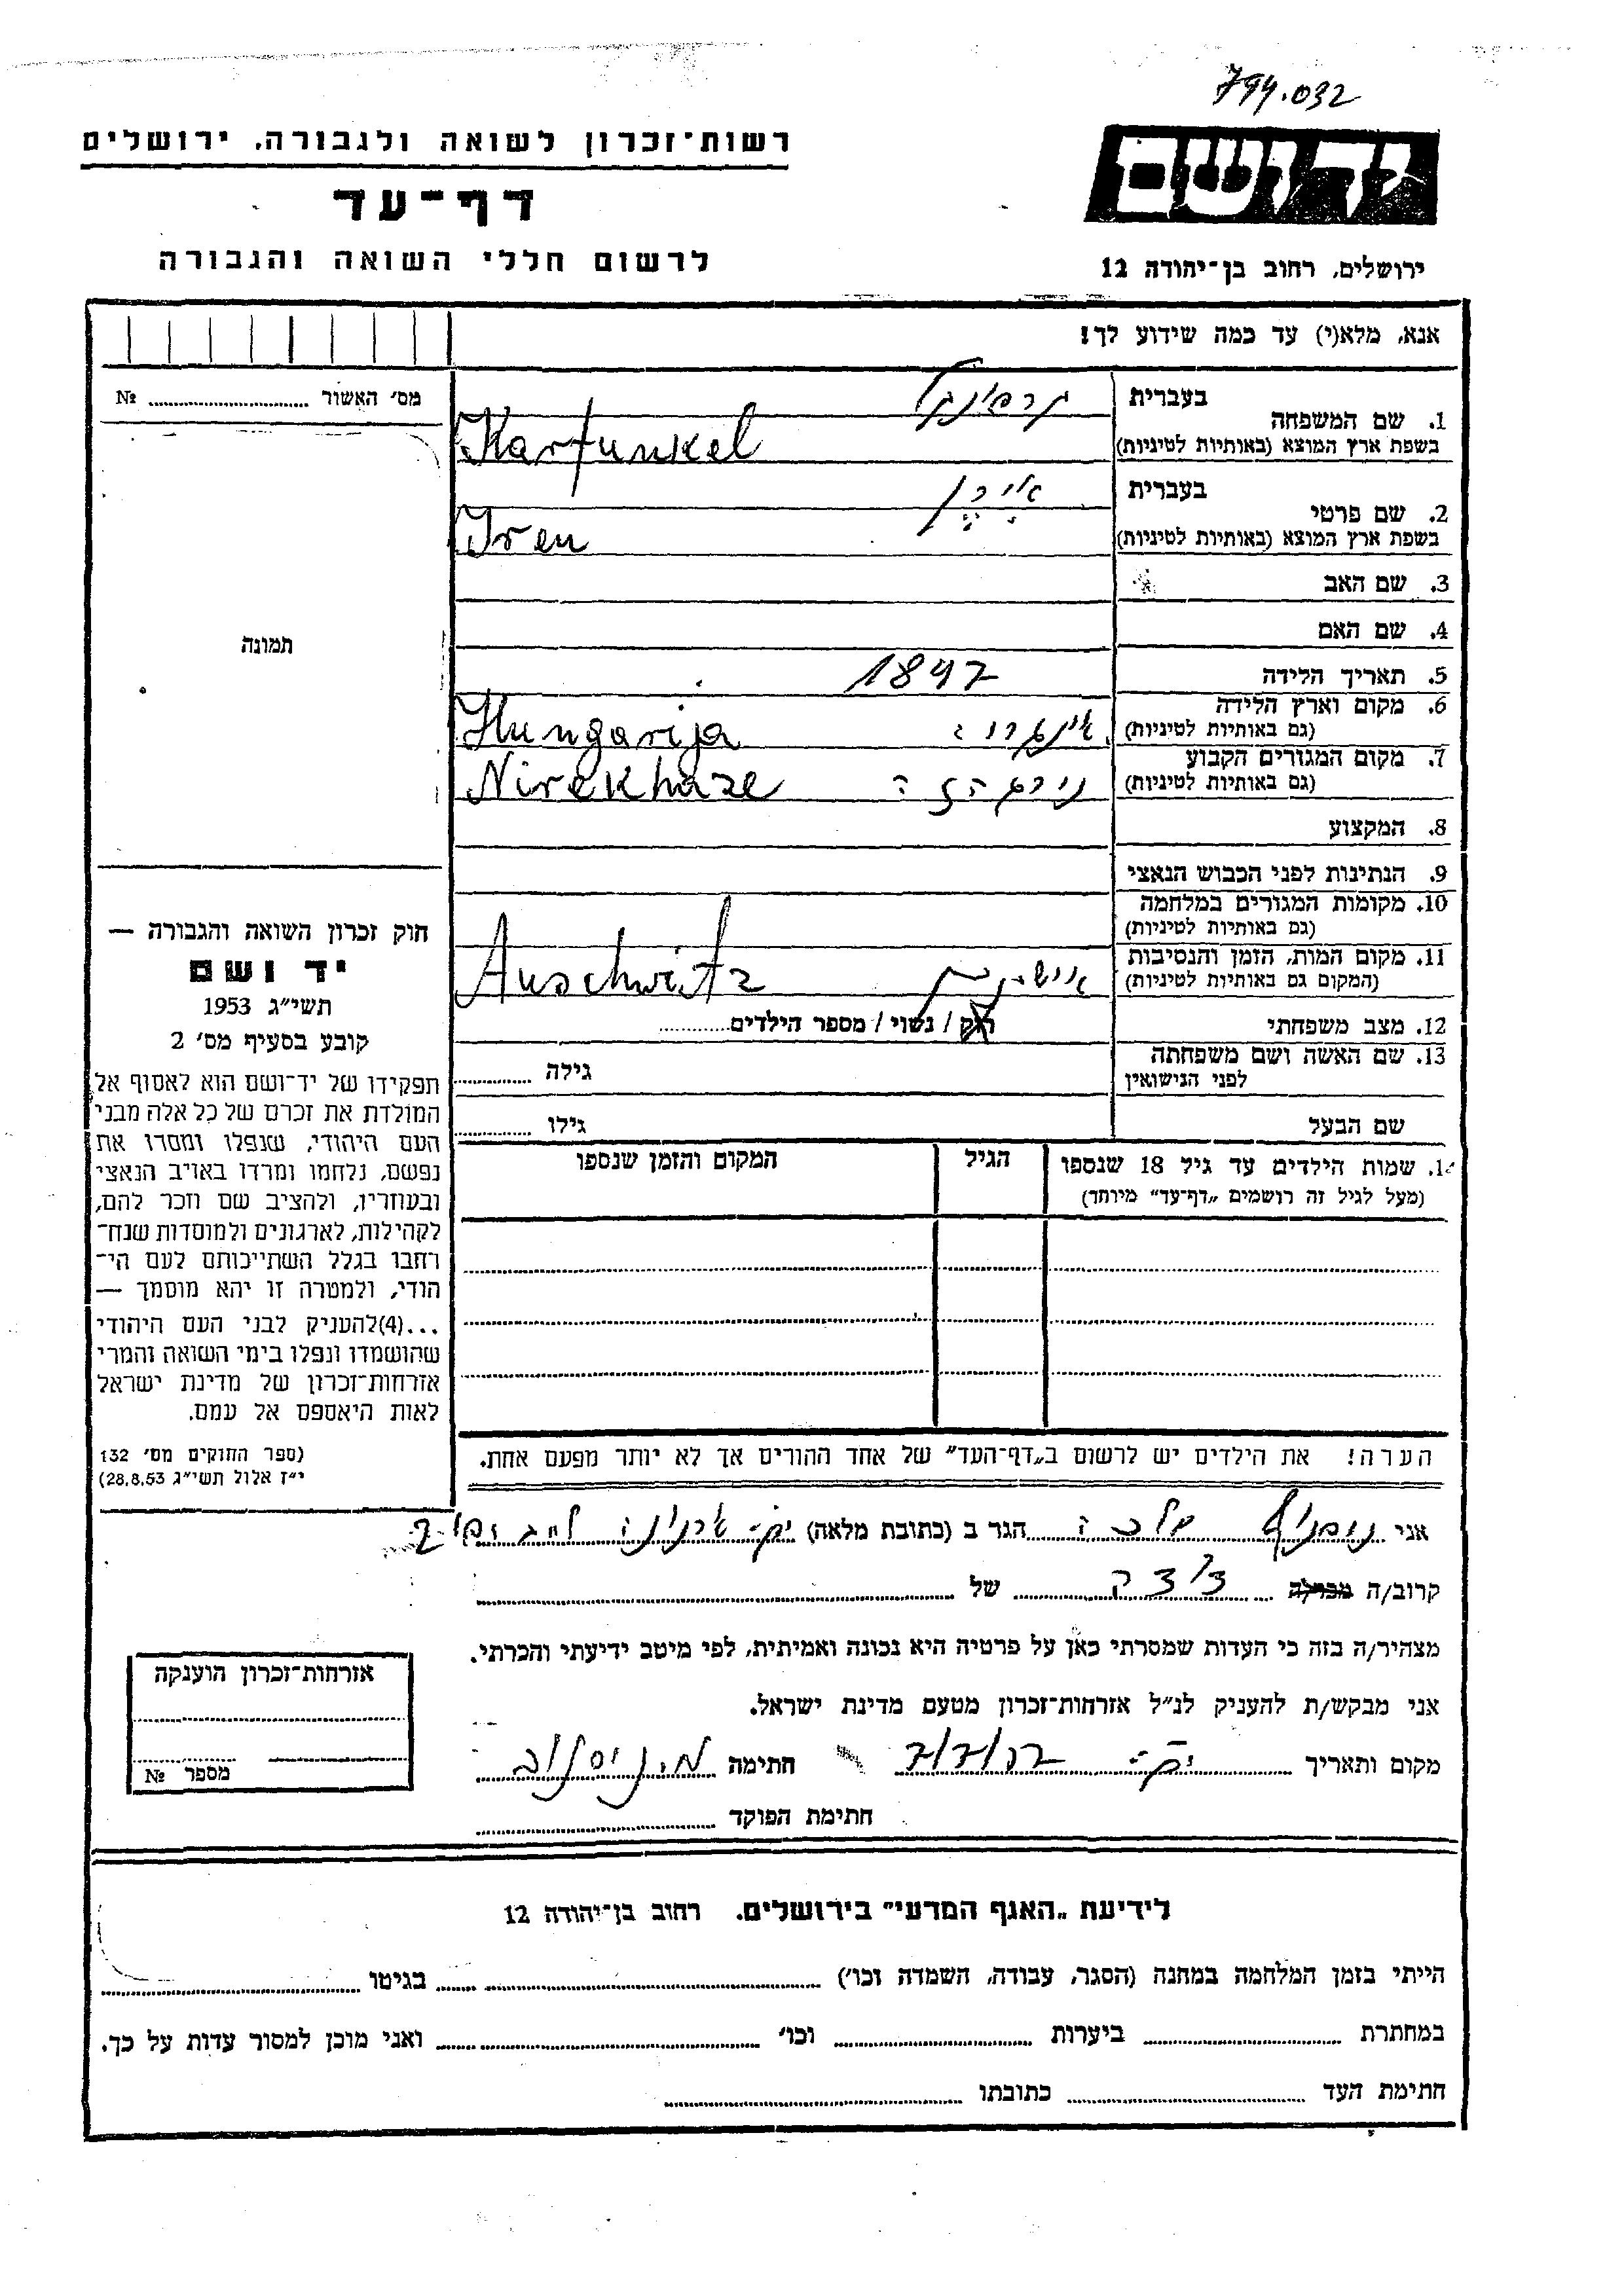 794.032
רשות־זכרון לשואה ולגבורה, ירושלים
יד ושם
דף־עד
לרשום חללי השואה והגבורה
ירושלים, רחוב בן־יהודה 12
אנא, מלא(י) עד כמה שידוע לך!
מס׳ האשור № 
1. שם המשפחה
בעברית
בשפת ארץ המוצא (באותיות לטיניות)
Karfunkel
2. שם פרטי
בעברית אירן
בשפת ארץ המוצא (באותיות לטיניות)
Iren
3. שם האב
4. שם האם
תמונה
5. תאריך הלידה 1897
6. מקום וארץ הלידה
(גם באותיות לטיניות)
Hungarija
7. מקום המגורים הקבוע
(גם באותיות לטיניות)
Nirekhaze
8. המקצוע
9. הנתינות לפני הכבוש הנאצי
10. מקומות המגורים במלחמה
(גם באותיות לטיניות)
11. מקום המות, הזמן והנסיבות
(המקום גם באותיות לטיניות)
Auschwitz
12. מצב משפחתי רוק / נשוי / מספר הילדים
13. שם האשה ושם משפחתה
לפני הנישואין
גילה
שם הבעל גילו
1. שמות הילדים עד גיל 18 שנספו
(מעל לגיל זה רושמים „דף־עד” מיוחד)
הגיל
המקום והזמן שנספו
חוק זכרון השואה והגבורה —
יד ושם
תשי״ג 1953
קובע בסעיף מס׳ 2
תפקידו של יד־ושם הוא לאסוף אל
המולדת את זכרם של כל אלה מבני
העם היהודי, שנפלו ומסרו את
נפשם, נלחמו ומרדו באויב הנאצי
ובעוזריו, ולהציב שם וזכר להם,
לקהילות, לארגונים ולמוסדות שנח־
רחבו בגלל השתייכותם לעם הי־
הודי, ולמטרה זו יהא מוסמך —
...(4)להעניק לבני העם היהודי
שהושמדו ונפלו בימי השואה והמרי
אזרחות־זכרון של מדינת ישראל
לאות היאספם אל עמם.
(ספר החוקים מס׳ 132
י״ז אלול תשי״ג 28.8.53)
הערה! את הילדים יש לרשום ב„דף־העד” של אחד ההורים אך לא יותר מפעם אחת.
אני הגר ב (כתובת מלאה)
קרוב/ה מכר/ה של
מצהיר/ה בזה כי העדות שמסרתי כאן על פרטיה היא נכונה ואמיתית, לפי מיטב ידיעתי והכרתי.
אני מבקש/ת להעניק לנ״ל אזרחות־זכרון מטעם מדינת ישראל.
מקום ותאריך חתימה
חתימת הפוקד
אזרחות־זכרון הוענקה
מספר №
לידיעת „האגף המדעי” בירושלים. רחוב בן־יהודה 12
הייתי בזמן המלחמה במחנה (הסגר, עבודה, השמדה וכו׳) בגיטו
במחתרת ביערות וכו׳ ואני מוכן למסור עדות על כך.
חתימת העד כתובתו